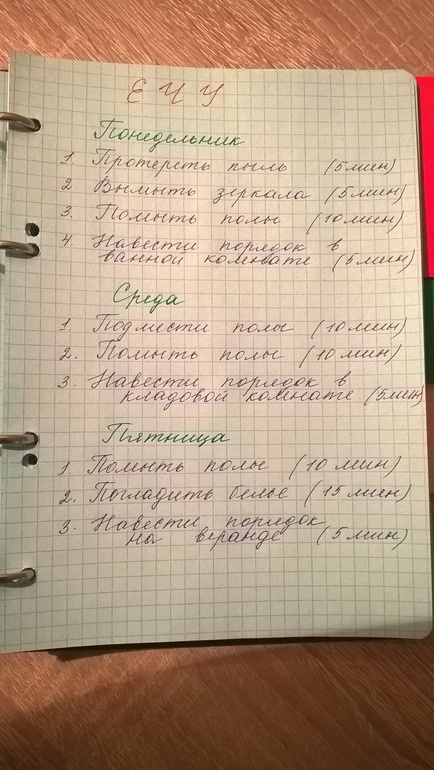 ЕЧУ
Понедельник
1. Протереть пыль (5 мин)
2. Вымыть зеркала (5 мин)
3. Помыть полы (10 мин)
4. Навести порядок в
ванной комнате (5 мин)
Среда
1. Подмести полы (10 мин)
2. Помыть полы (10 мин)
3. Навести порядок в
кладовой комнате (5 мин)
Пятница
1. Помыть полы (10 мин)
2. Погладить белье (15 мин)
3. Навести порядок
на веранде (5 мин)